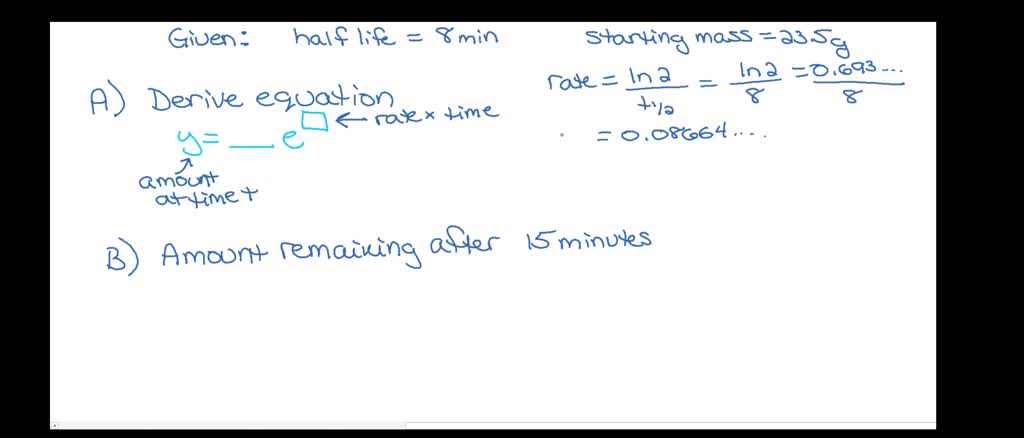 Given: half life = 8 min starting mass = 23.5g
A) Derive equation
y = __ e^□ ← rate × time
amount
at time t
rate = ln 2 / t 1/2 = ln 2 / 8 = 0.693... / 8
= 0.08664....
B) Amount remaining after 15 minutes